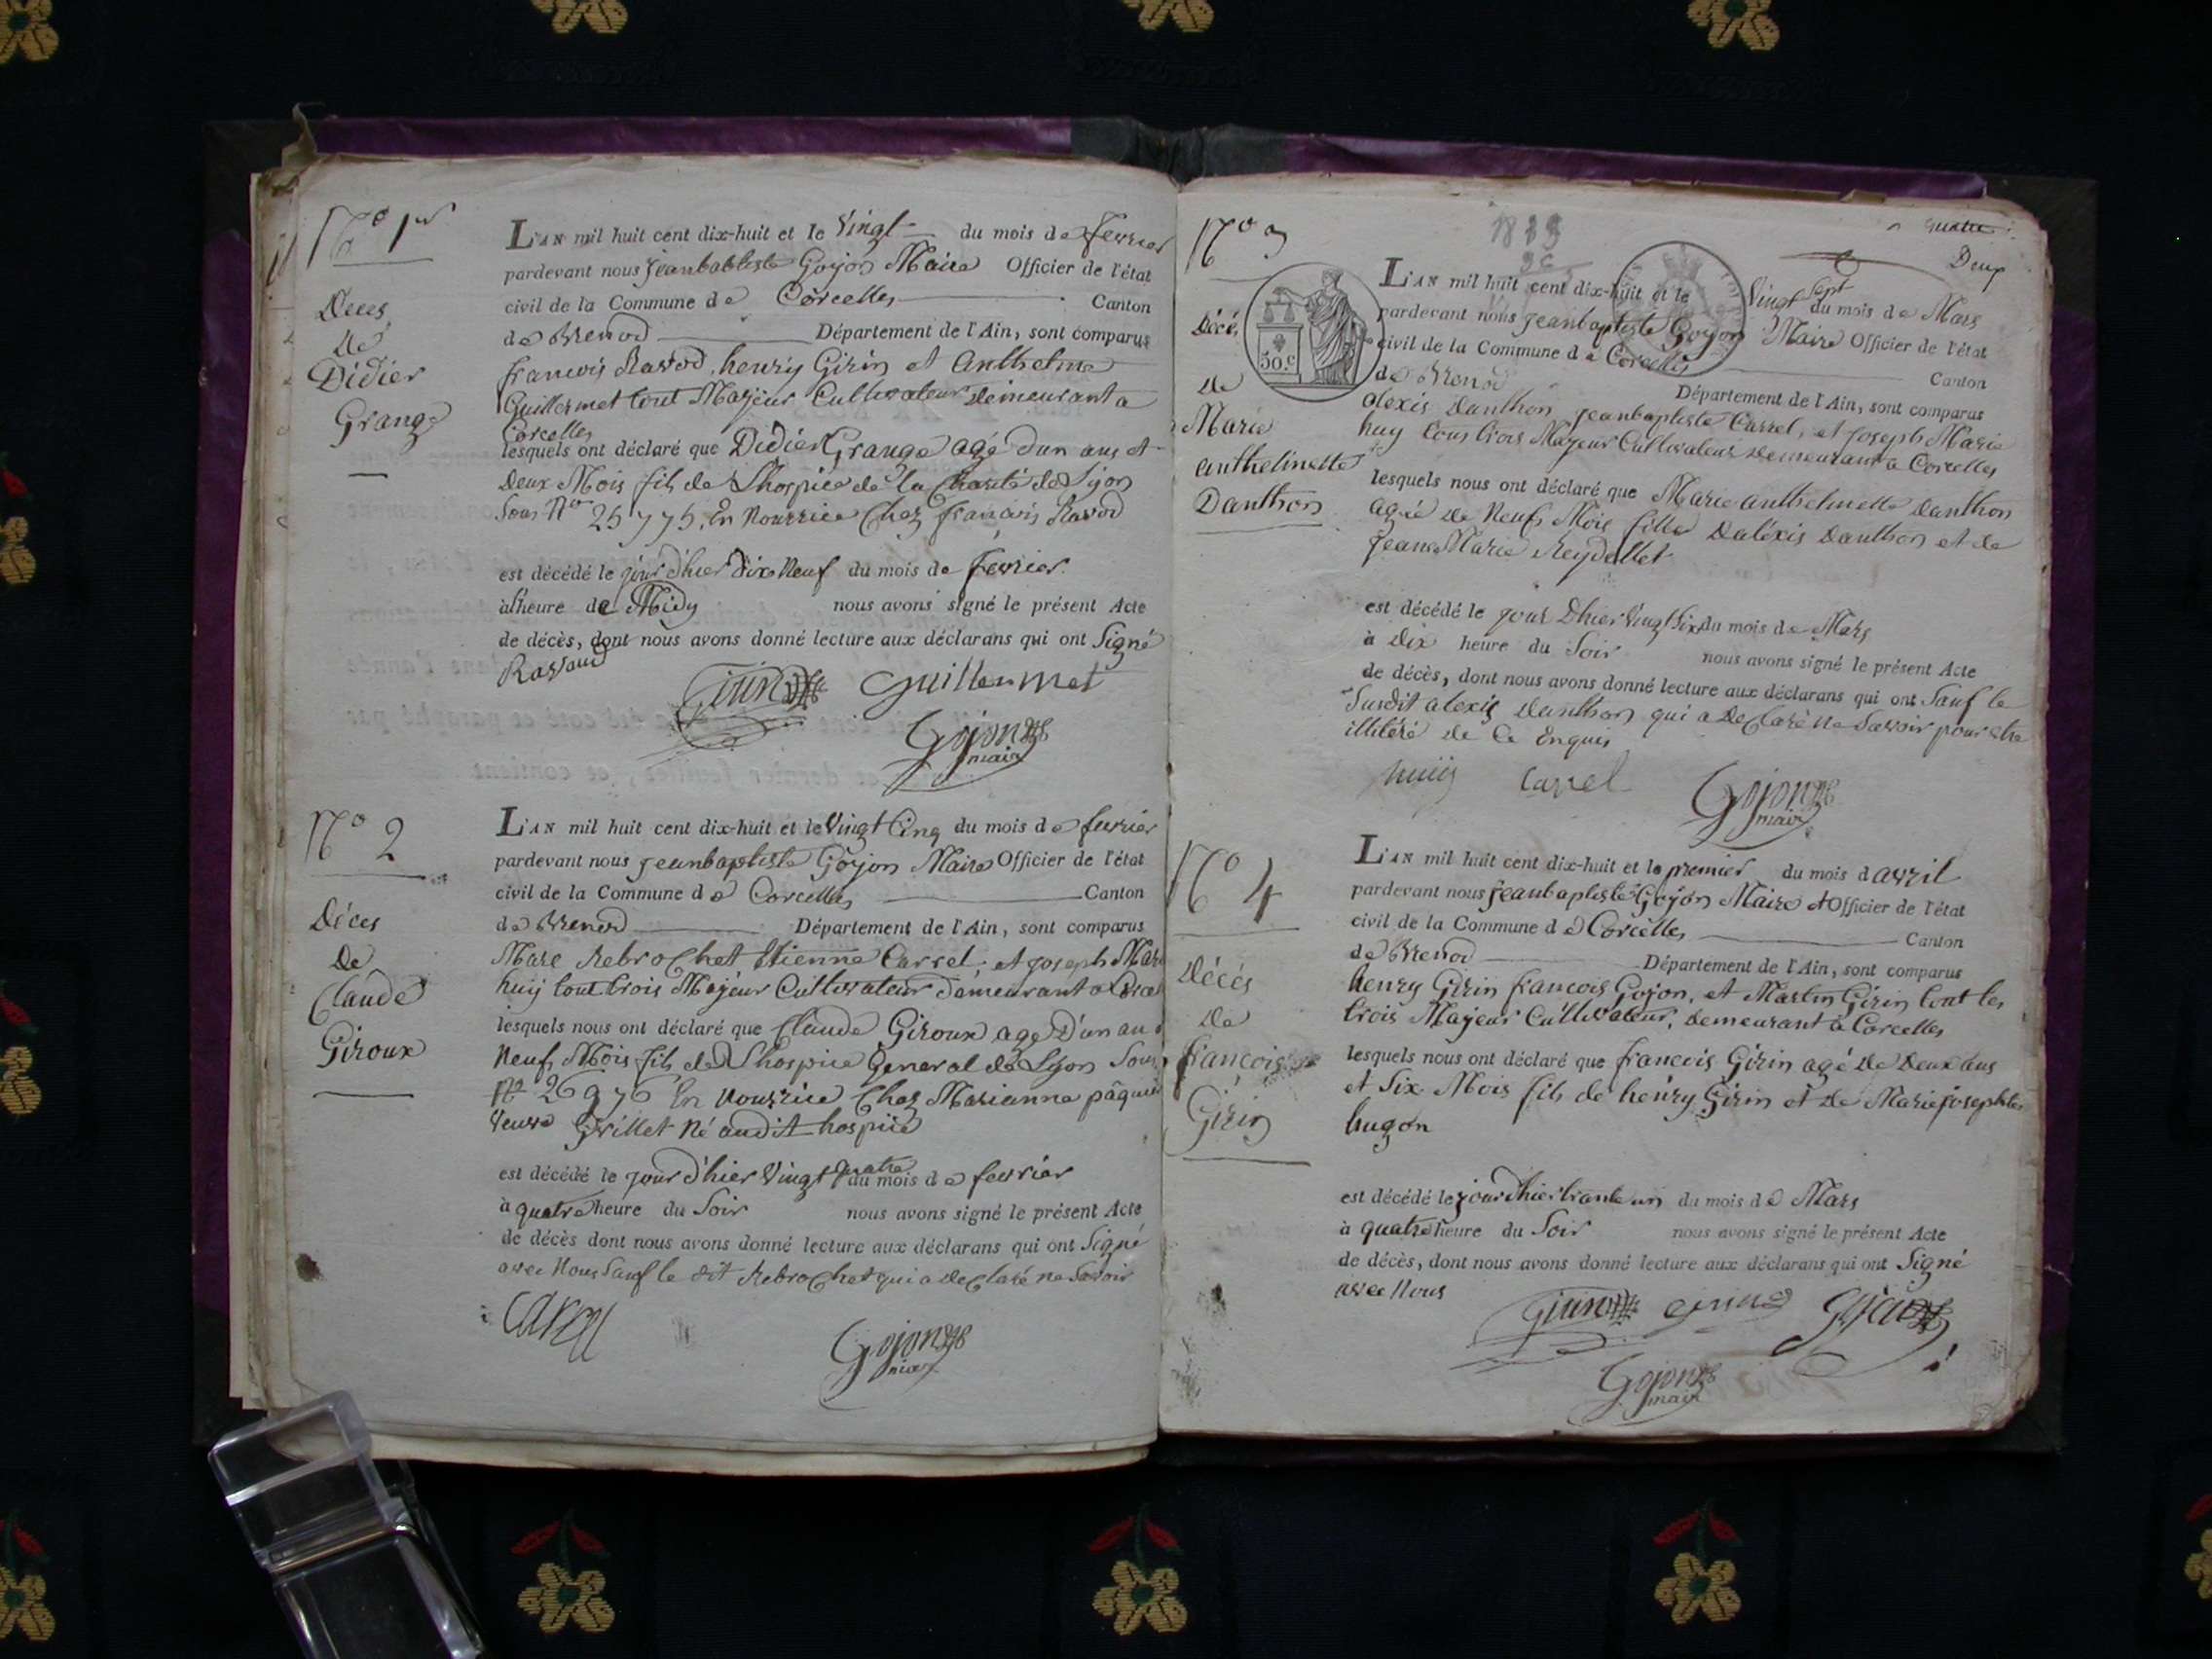 N° 1er
Deces
de
Didier
Grange
L'AN mil huit cent dix-huit et le Vingt du mois de fevrier
pardevant nous jeanbabtiste Gojon Maire Officier de l'état
civil de la Commune de Corcelles Canton
de Brenod Département de l'Ain, sont comparus
francois Ravod, henry Girin et Anthelme
Guillermet tout Majeur Cultivateur demeurant a
Corcelles
lesquels ont déclaré que Didier Grange agé d'un ans et
Deux Mois fils de L'hospice de la Charité de Lyon
Sous N° 25775, En Nourrice Chez francois Ravod
est décédé le jour d'hier dix Neuf du mois de fevrier
à l'heure de Midy nous avons signé le présent Acte
de décès, dont nous avons donné lecture aux déclarans qui ont Signé
Ravaud
Girin Guillermet
Gojon
maire
N° 2
Déces
de
Claude
Giroux
L'AN mil huit cent dix-huit et le Vingt Cinq du mois de fevrier
pardevant nous jeanbaptiste Gojon Maire Officier de l'état
civil de la Commune de Corcelles Canton
de Brenod Département de l'Ain, sont comparus
Marc Rebrochet Etienne Carrel, et joseph Mari
huy tout trois Majeur Cultivateur demeurant a Corcel
lesquels nous ont déclaré que Claude Giroux age D'un an
Neuf Mois fils de L'hospice General de Lyon Sous
N° 26976 En Nourrice Chez Marianne pâquie
Veuve Grillet Né audit hospice
est décédé le jour d'hier Vingt quatre du mois de fevrier
à quatre heure du Soir nous avons signé le présent Acte
de décès dont nous avons donné lecture aux déclarans qui ont Signé
avec Nous Sauf le dit Rebrochet qui a declaré ne Savoir
Carrel
Gojon
maire
N° 3
1818
quatre
Deux
50.c
Décé
de
Marie
anthelmette
Danthon
L'AN mil huit cent dix-huit et le Vingt Sept du mois de Mars
pardevant nous jeanbaptiste Gojon Maire Officier de l'état
civil de la Commune de Corcelles
de Brenod Canton
Département de l'Ain, sont comparus
alexis danthon jeanbaptiste Carrel, et joseph Marie
huy tous trois Majeur Cultivateur demeurant a Corcelles
lesquels nous ont déclaré que Marie anthelmette danthon
agée de Neuf Mois fille D'aléxis danthon et de
jeanne Marie Reydellet
est décédé le jour D'hier Vingt Six du mois de Mars
à dix heure du Soir nous avons signé le présent Acte
de décès, dont nous avons donné lecture aux déclarans qui ont Sauf le
Susdit alexis danthon qui a declaré ne Savoir pour etre
illitéré de Ce Enquis
huy Carrel
Gojon
maire
N° 4
Décés
de
francois
Girin
L'AN mil huit cent dix-huit et le premier du mois d'avril
pardevant nous jeanbaptiste Gojon Maire et Officier de l'état
civil de la Commune de Corcelles Canton
de Brenod Département de l'Ain, sont comparus
henry Girin francois Gojon, et Martin Girin tout les
trois Majeur Cultivateur, demeurant à Corcelles
lesquels nous ont déclaré que francois Girin agé de Deux ans
et Six Mois fils de henry Girin et de Marie josephte
hugon
est décédé le jour d'hier trante un du mois de Mars
à quatre heure du Soir nous avons signé le présent Acte
de décès, dont nous avons donné lecture aux déclarans qui ont Signé
avec Nous
Girin girin Gojon
Gojon
maire